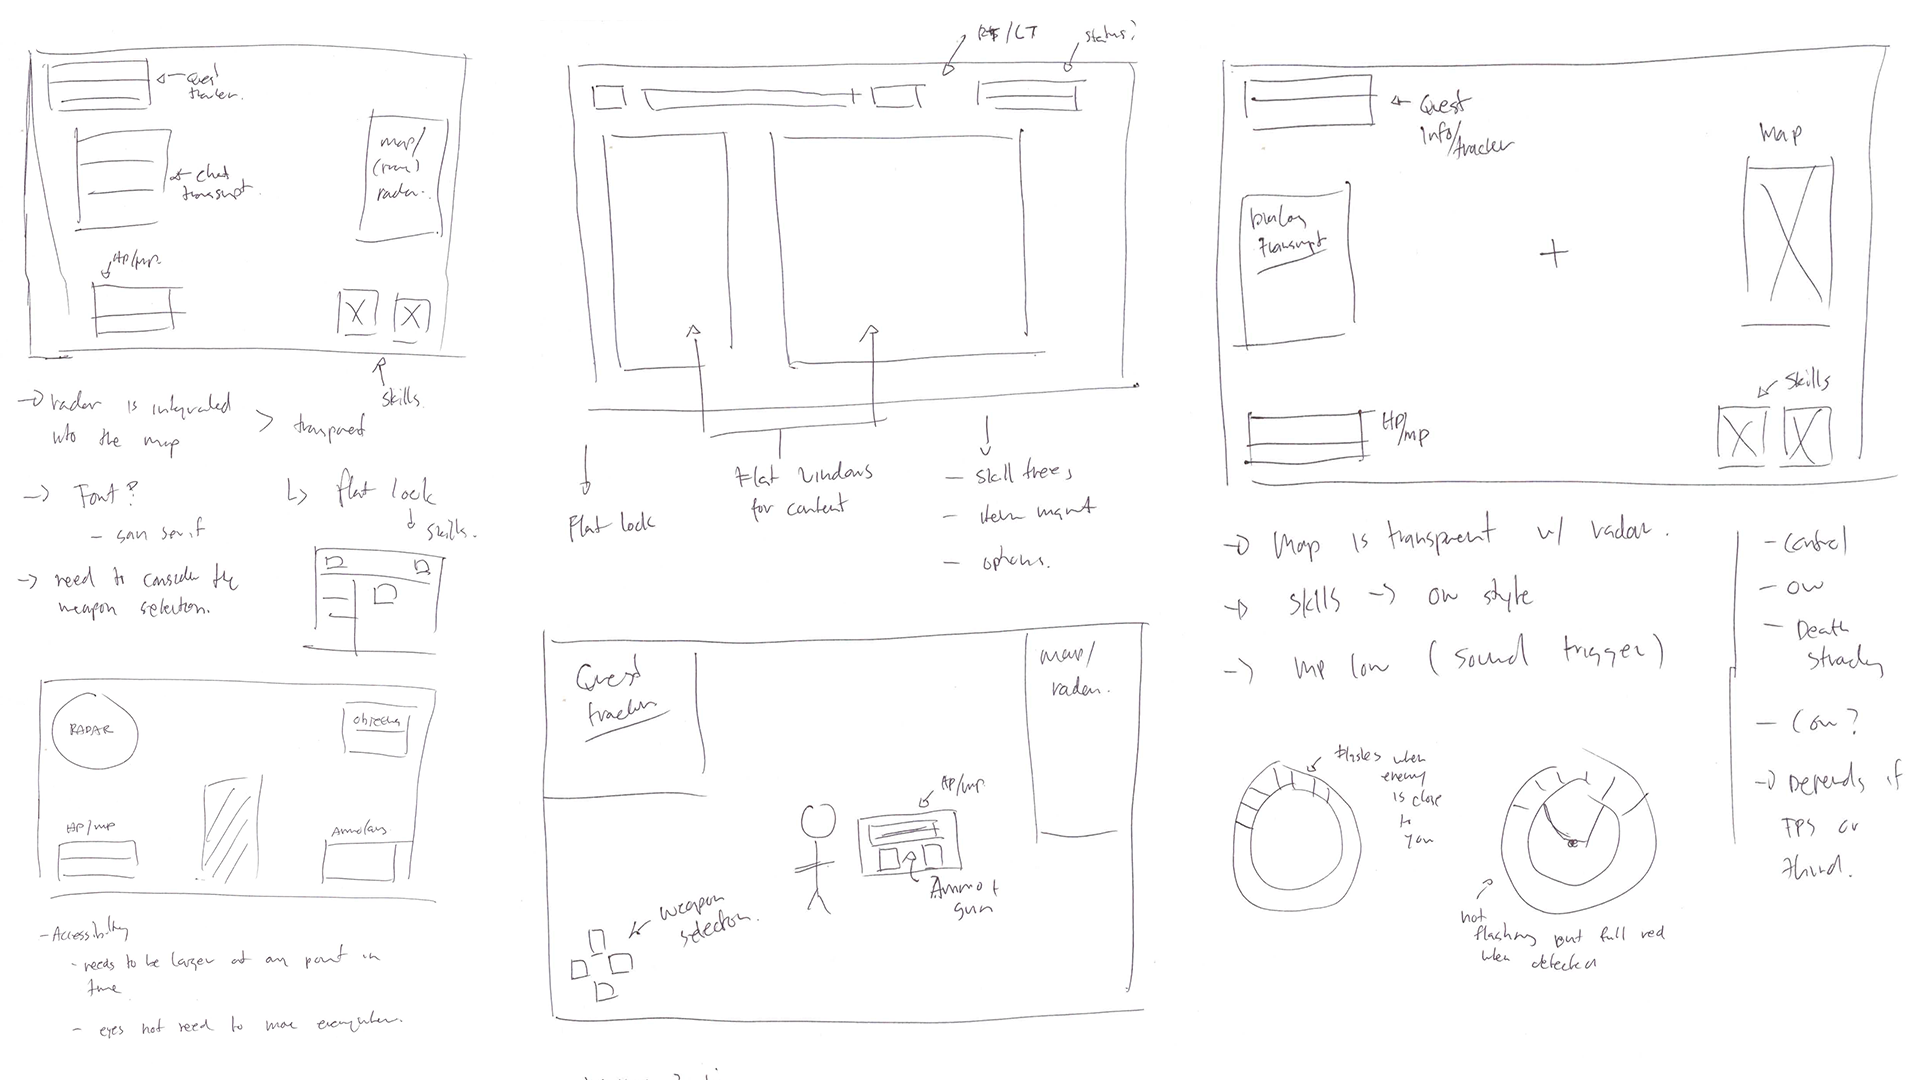 Quest
tracker.
Chat
transcript.
HP/MP.
map/
radar.
skills.
→ radar is integrated
into the map
> transparent
→ Font?
- san serif
↳ flat look
↓ skills.
→ need to consider the
weapon selection.
RADAR
objective
HP/MP
- Accessibility
- needs to be larger at any point in
time
- eyes not need to move everywhere.
/LT
status?
Flat look
Flat windows
for content
- skill trees
- item mgmt
- options.
Quest
tracker
map/
radar.
HP/MP
Ammo +
gun
weapon
selection.
Quest
info/
tracker
Map
Dialog
transcript
+
Skills
HP/MP
→ Map is transparent w/ radar.
→ skills → OW style
→ MP low (sound trigger)
- control
- OW
- Death
Stranding
→ Depends if
FPS or
third.
flashes when
enemy
is close
to
you
not
flashing but full red
when detected